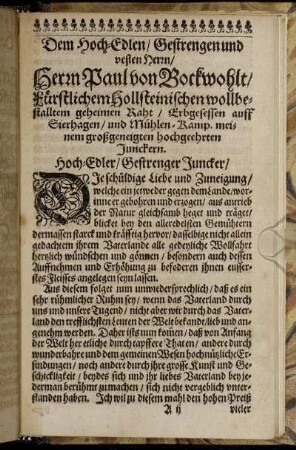 Dem Hoch-Edlen/ Gestrengen und
vesten Herrn/
Herrn Paul von Bockwohlt/
Fürstlichem Hollsteinischen wollbe-
stalltem geheimen Raht/ Erbgesessen auff
Sierhagen/ und Mühlen-Kamp. mei-
nem großgeneigten hochgeehrten
Junckern.
Hoch-Edler/ Gestrenger Juncker/
Die schüldige Liebe und Zuneigung/
welche ein jetweder gegen dem Lande/ wor-
inne er gebohren und erzogen/ aus antrieb
der Natur gleichsamb heget und träget/
blicket bey den alleredelsten Gemühtern
dermassen starck und kräfftig hervor/ daß selbige nicht allein
gedachtem jhrem Vaterlande alle gedeyliche Wollfahrt
hertzlich wündschen und gönnen/ besondern auch dessen
Auffnehmen und Erhöhung zu befoderen jhnen eusser-
stes Fleisses angelegen seyn lassen.
Aus diesem folget nun unwiedersprechlich/ daß es ein
sehr rühmlicher Ruhm sey/ wenn das Vaterland durch
uns und unsere Tugend/ nicht aber wir durch das Vater-
land den trefflichsten Leuten der Welt bekandt/ lieb und an-
genehm werden. Daher ists nun kommen/ daß von Anfang
der Welt her etliche durch tapffere Thaten/ andere durch
wunderbahre und dem gemeinen Wesen hochnützliche Er-
findungen/ noch andere durch jhre grosse Kunst und Ge-
schickligkeit/ beydes sich und jhr liebes Vaterland bey je-
derman berühmt zu machen/ sich nicht vergeblich unter-
standen haben. Ich wil zu diesem mahl den hohen Preiß
A ij vieler